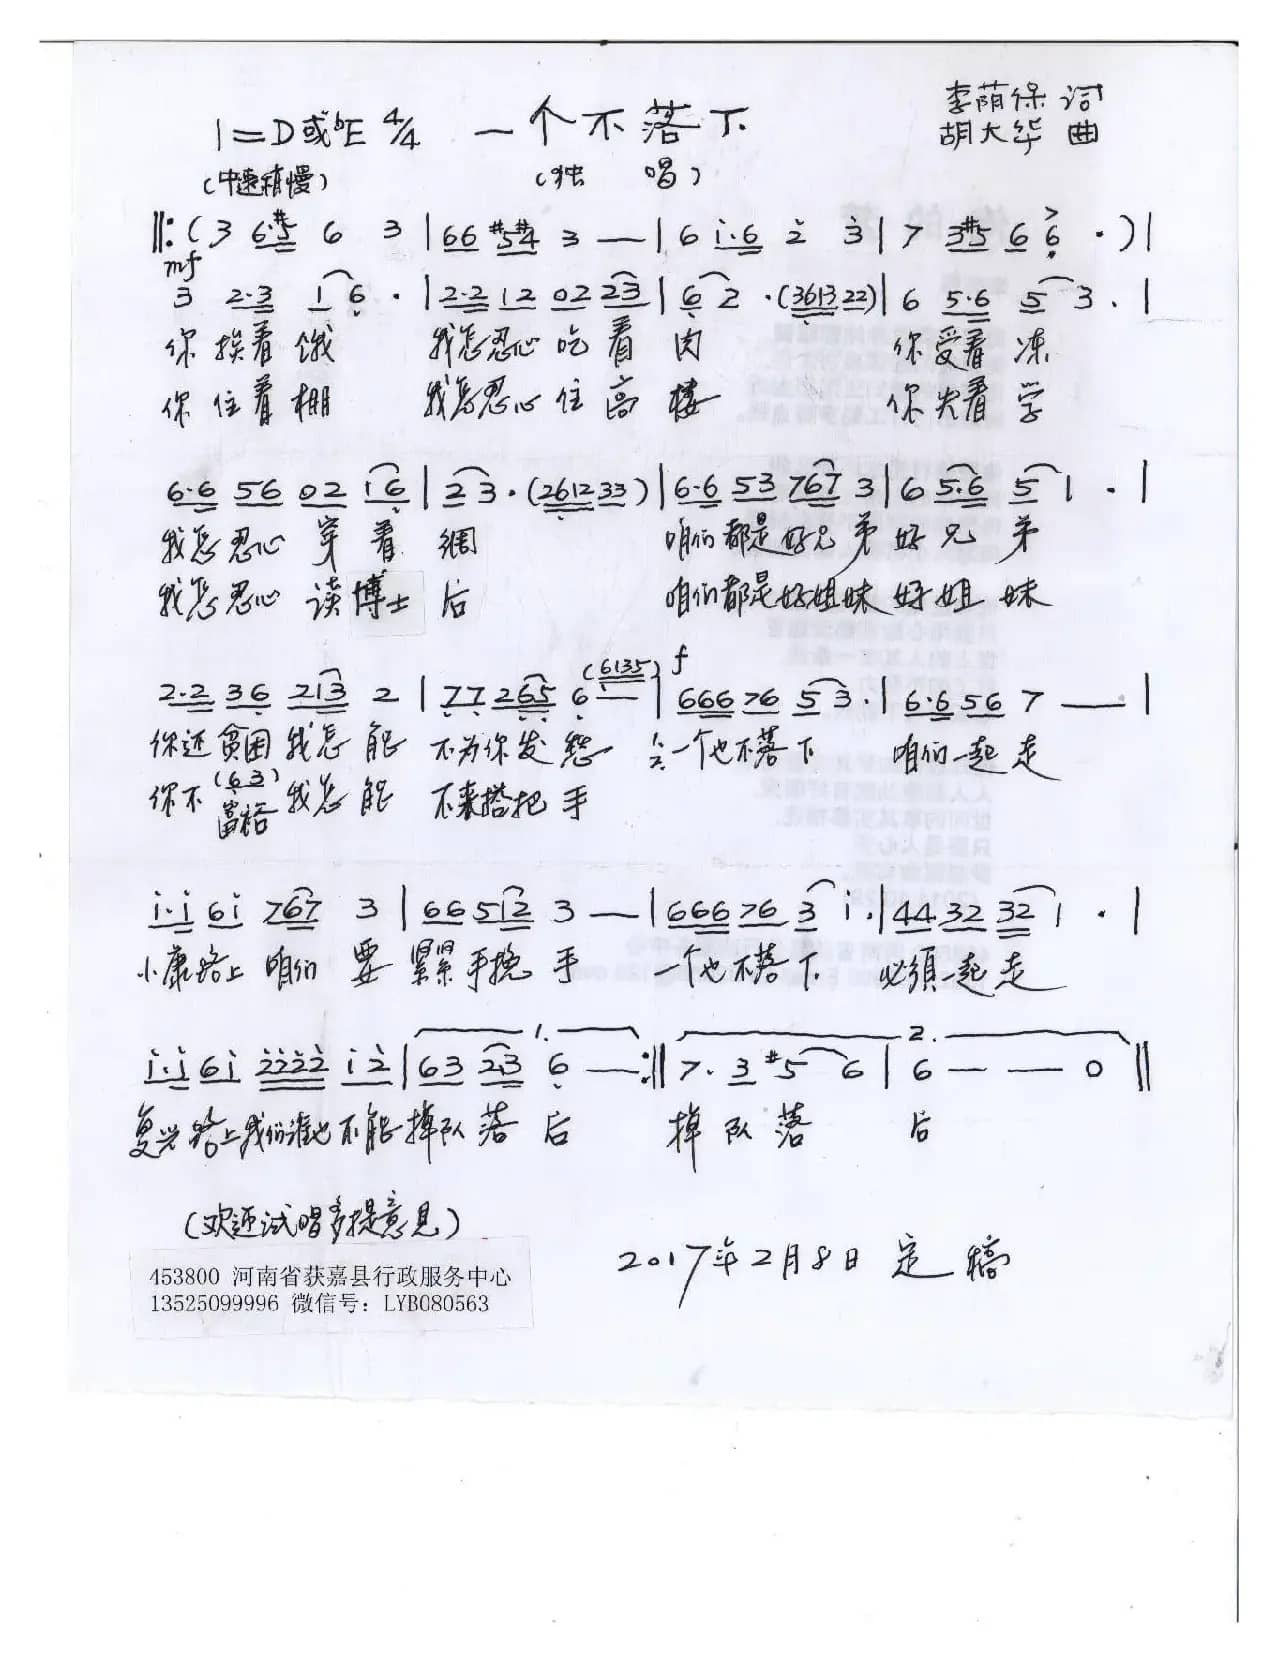 李荫保 词
1=D或bE 4/4 一个不落下
胡大华 曲
(中速稍慢) (独 唱)
‖:( 3 6·#5 6 3 | 66 #5#4 3 — | 6 i·6 2 3 | 7 3#5 6 6 · ) |
mf
3 2·3 1 6 · | 2·2 12 02 23 | 6 2 ·(361322) | 6 5·6 5 3 · |
你 挨着 饿 我怎忍心 吃 着 肉 你 受着 冻
你 住着 棚 我怎忍心 住 高 楼 你 失着 学
6·6 56 02 16 | 2 3 ·(261233) | 6·6 53 767 3 | 6 5·6 5 1 · |
我怎忍心 穿 着 绸 咱们都是好兄弟 好兄 弟
我怎忍心 读博士 后 咱们都是好姐妹 好姐 妹
(6135) f
2·2 36 213 2 | 77 265 6 — | 666 76 5 3· | 6·6 56 7 — |
你还贫困 我怎 能 不为你发愁 一个也不落 下 咱们一起 走
(63)
你不富裕 我怎 能 不来搭把 手
i·i 6i 767 3 | 66 512 3 — | 666 76 3 i· | 44 32 32 1 · |
小康路上 咱们 要 紧紧手挽 手 一个也不落 下 必须一起 走
1. 2.
i·i 6i 2222 i2 | 63 23 6 — :‖ 7· 3 #5 6 | 6 — — 0 ‖
复兴路上我们谁也不能掉队 落 后 掉 队 落 后
(欢迎试唱多提意见)
2017年2月8日 定 稿
453800 河南省获嘉县行政服务中心
13525099996 微信号：LYB080563